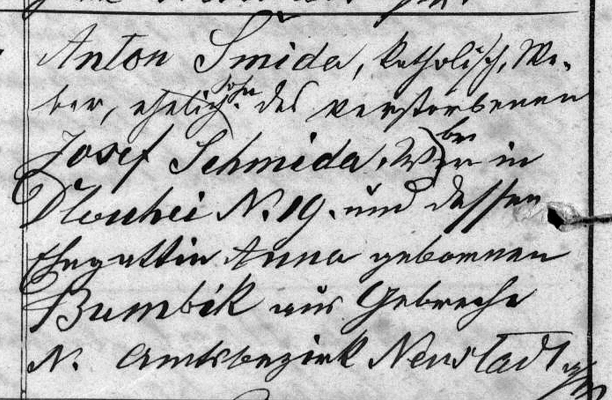 Anton Šmida, katholisch, We-
ber, ehelich. Sohn des verstorbenen
Josef Schmida, Weber in
Dlouhei N. 19. und dessen
Ehegattin Anna gebornen
Bumbik aus Gebreche
N. Amtsbezirk Neustadt